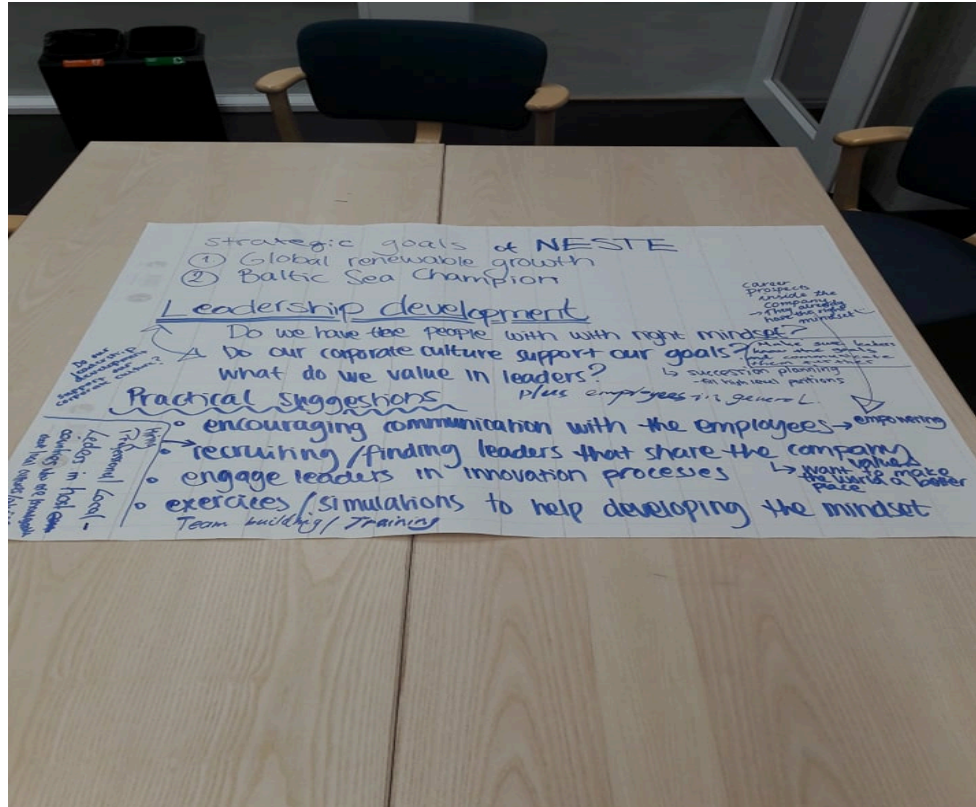 strategic goals of NESTE
① Global renewable growth
② Baltic Sea Champion
Leadership development
Do we have the people with with right mindset?
Do our corporate culture support our goals?
What do we value in leaders?
plus employees in general
career
prospects
inside the
company
→ They already
have the right
mindset
Make sure leaders
know the goals
communicate
↳ succestion planning
- on high level positions
Do our
leadership
development
support our
corporate culture?
Practical suggestions
• encouraging communication with the employees → empowering
• recruiting/finding leaders that share the company
values
↳ want to make
the world a better
place
• engage leaders in innovation processes
• exercices/simulations to help developing the mindset
Team building/Training
Local -
Leders in host
countries